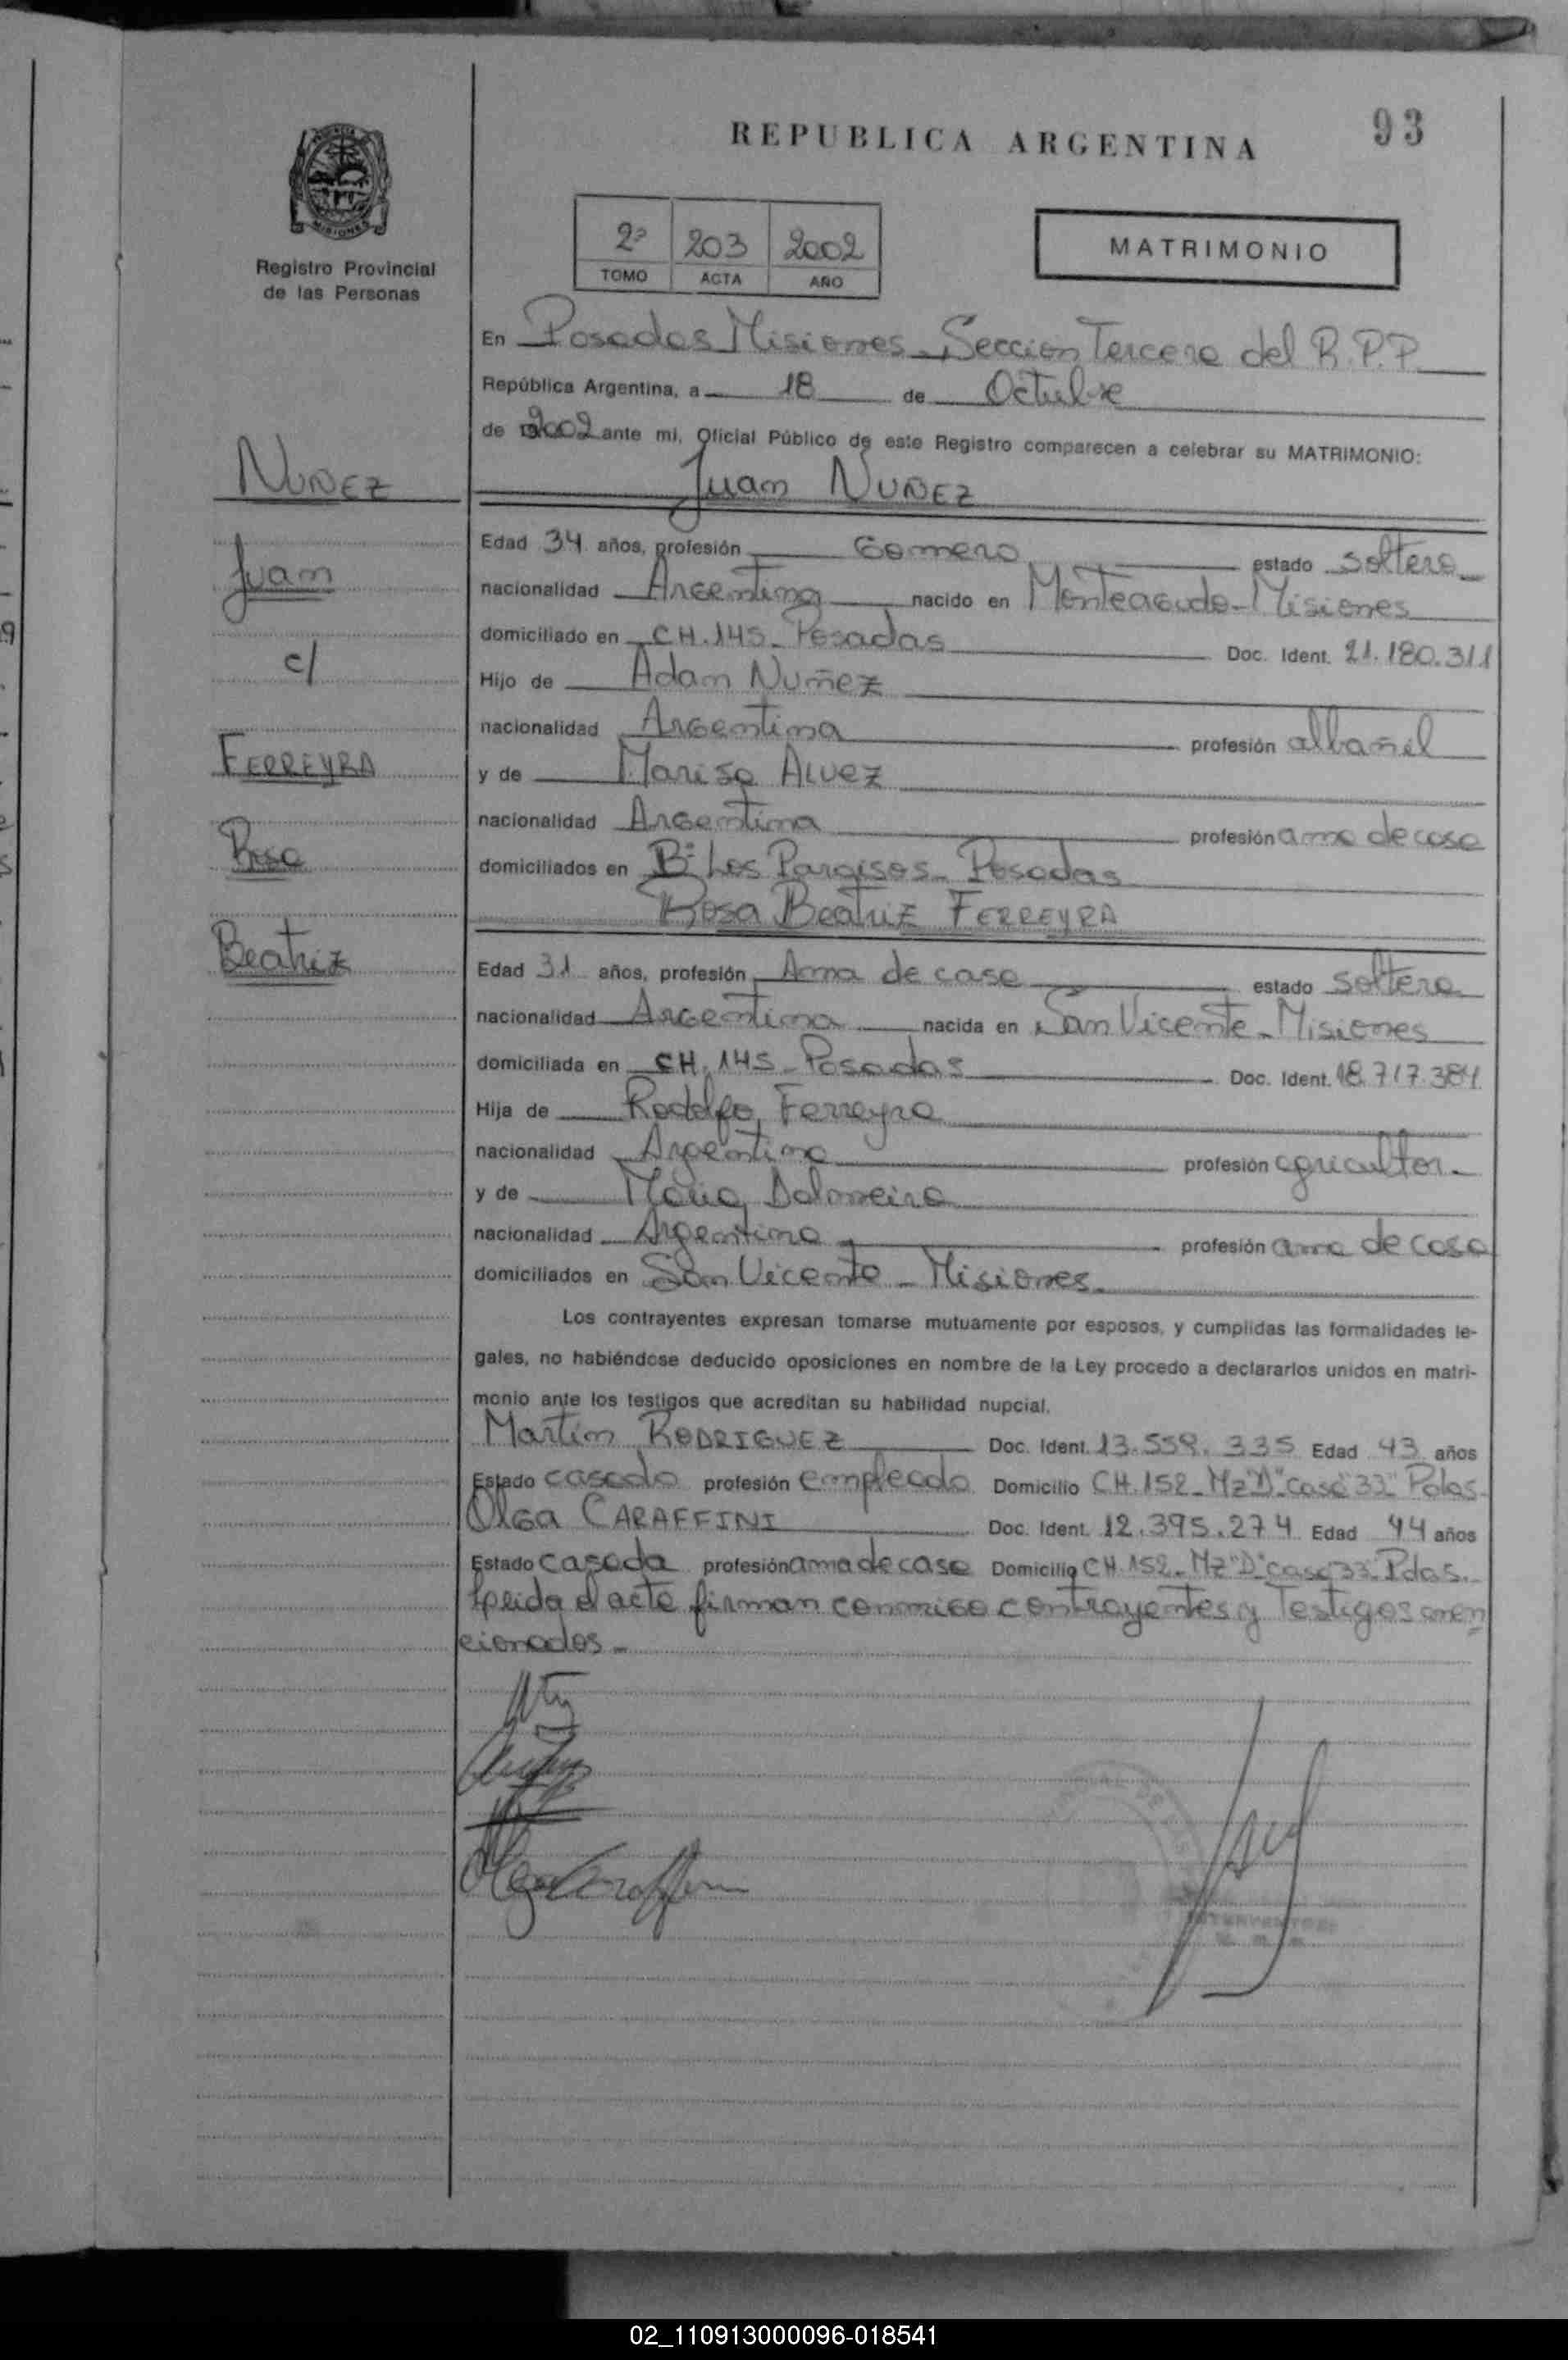 REPUBLICA ARGENTINA
93
MISIONES
Registro Provincial
de las Personas
2º 203 2002
TOMO ACTA AÑO
MATRIMONIO
En Posadas Misiones, Sección Tercera del R.P.P.
República Argentina, a 18 de Octubre
de 2002 ante mi, Oficial Público de este Registro comparecen a celebrar su MATRIMONIO:
NUÑEZ
Juan
c/
FERREYRA
Rosa
Beatriz
Juan NUÑEZ
Edad 34 años, profesión Gomero estado soltero
nacionalidad Argentina nacido en Monteagudo-Misiones
domiciliado en CH.145- Posadas Doc. Ident. 21.180.311
Hijo de Adam Nuñez
nacionalidad Argentina profesión albañil
y de Marisa ALVEZ
nacionalidad Argentina profesión ama de casa
domiciliados en Bº Los Paraisos- Posadas
Rosa Beatriz FERREYRA
Edad 31 años, profesión Ama de casa estado soltera
nacionalidad Argentina nacida en San Vicente-Misiones
domiciliada en CH.145- Posadas Doc. Ident. 18.717.384
Hija de Rodolfo Ferreyra
nacionalidad Argentina profesión agricultor.-
y de Maria Dalmeira
nacionalidad Argentina profesión ama de casa
domiciliados en San Vicente - Misiones.
Los contrayentes expresan tomarse mutuamente por esposos, y cumplidas las formalidades le-
gales, no habiéndose deducido oposiciones en nombre de la Ley procedo a declararlos unidos en matri-
monio ante los testigos que acreditan su habilidad nupcial.
Martin RODRIGUEZ Doc. Ident. 13.558.335 Edad 43 años
Estado casado profesión empleado Domicilio CH.152-Mz"D"casa"33" Pdas-
Olga CARAFFINI Doc. Ident. 12.395.274 Edad 44 años
Estado casada profesión ama de casa Domicilio CH.152-Mz"D"casa"33"-Pdas.-
Leida el acta firman conmigo contrayentes y Testigos men
cionados.-
02_110913000096-018541